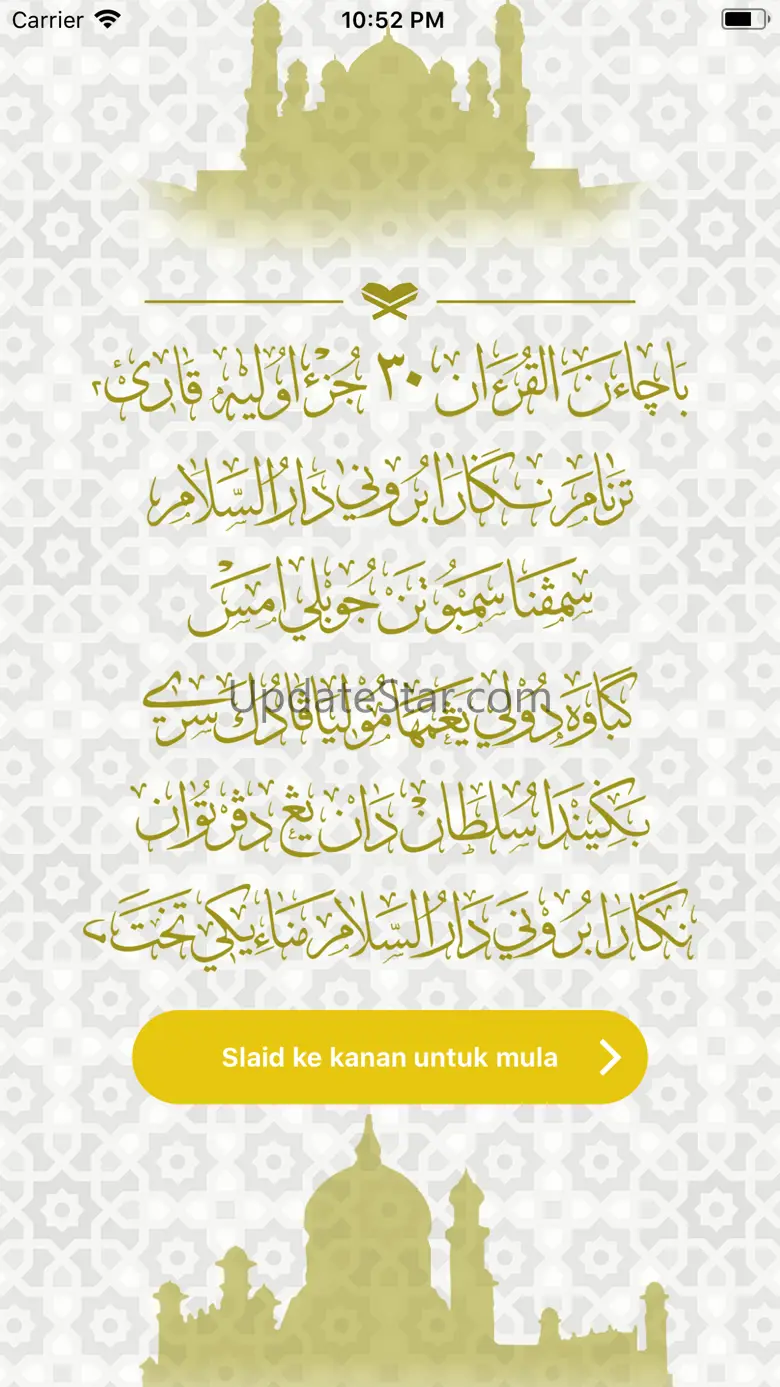 Carrier 10:52 PM
باچاءن القرءان ٣٠ جزء اوليه قارئ٢
ترنامر نݢارا بروني دارالسلام
سمڤنا سمبوتن جوبلي امس
كباوه دولي يڠمها موليا ڤادوك سري
بݢيندا سلطان دان يڠ دڤرتوان
نݢارا بروني دارالسلام مناءيكي تخت٢
UpdateStar.com
Slaid ke kanan untuk mula